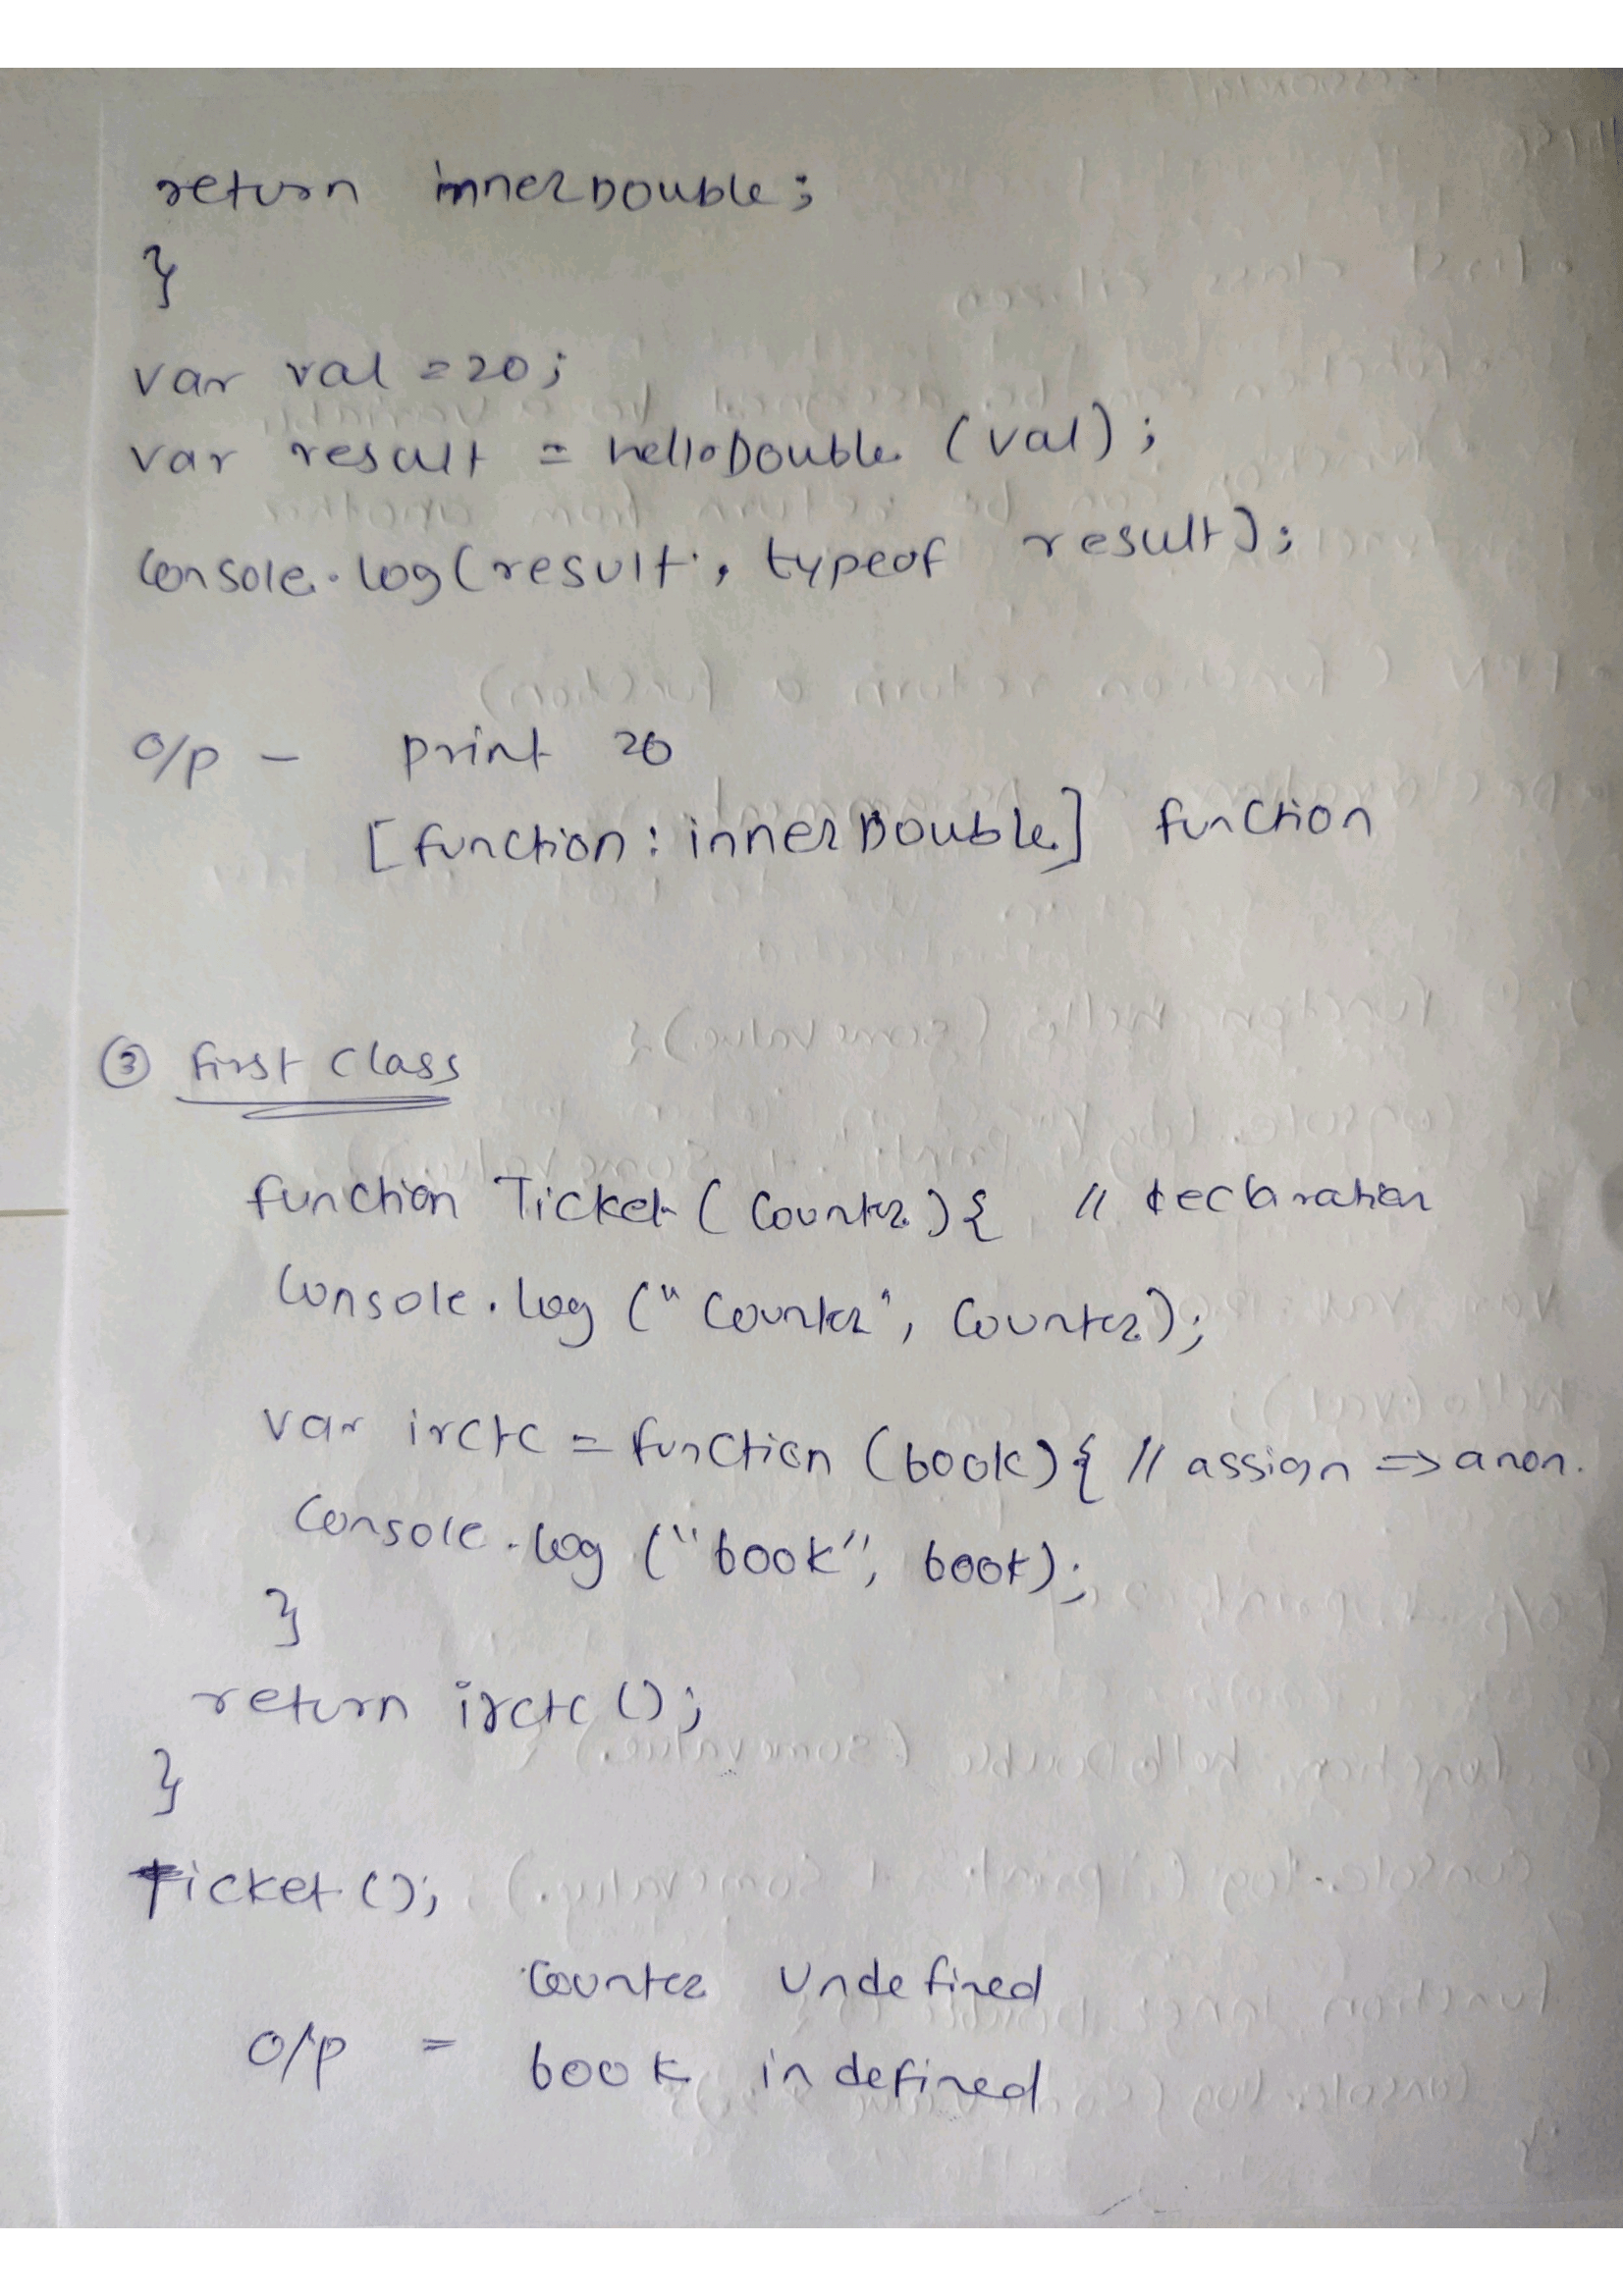 return innerDouble;
}
var val = 20;
var result = helloDouble (val);
console.log(result, typeof result);
o/p - print 20
[function: innerDouble] function
③ first class
function Ticket (counter) { // declaration
console.log ("counter", counter);
var irctc = function (book) { // assign => anon.
console.log ("book", book);
}
return irctc ();
}
Ticket ();
counter undefined
o/p =
book indefined